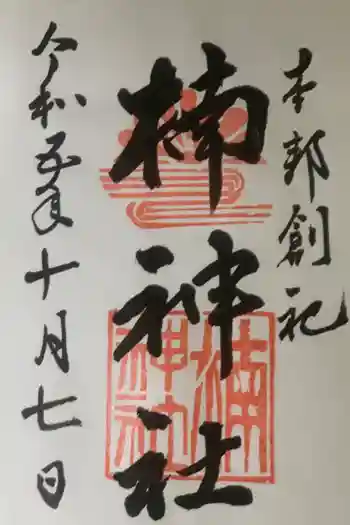 本邦創祀
楠神社
令和五年十月七日
楠神社